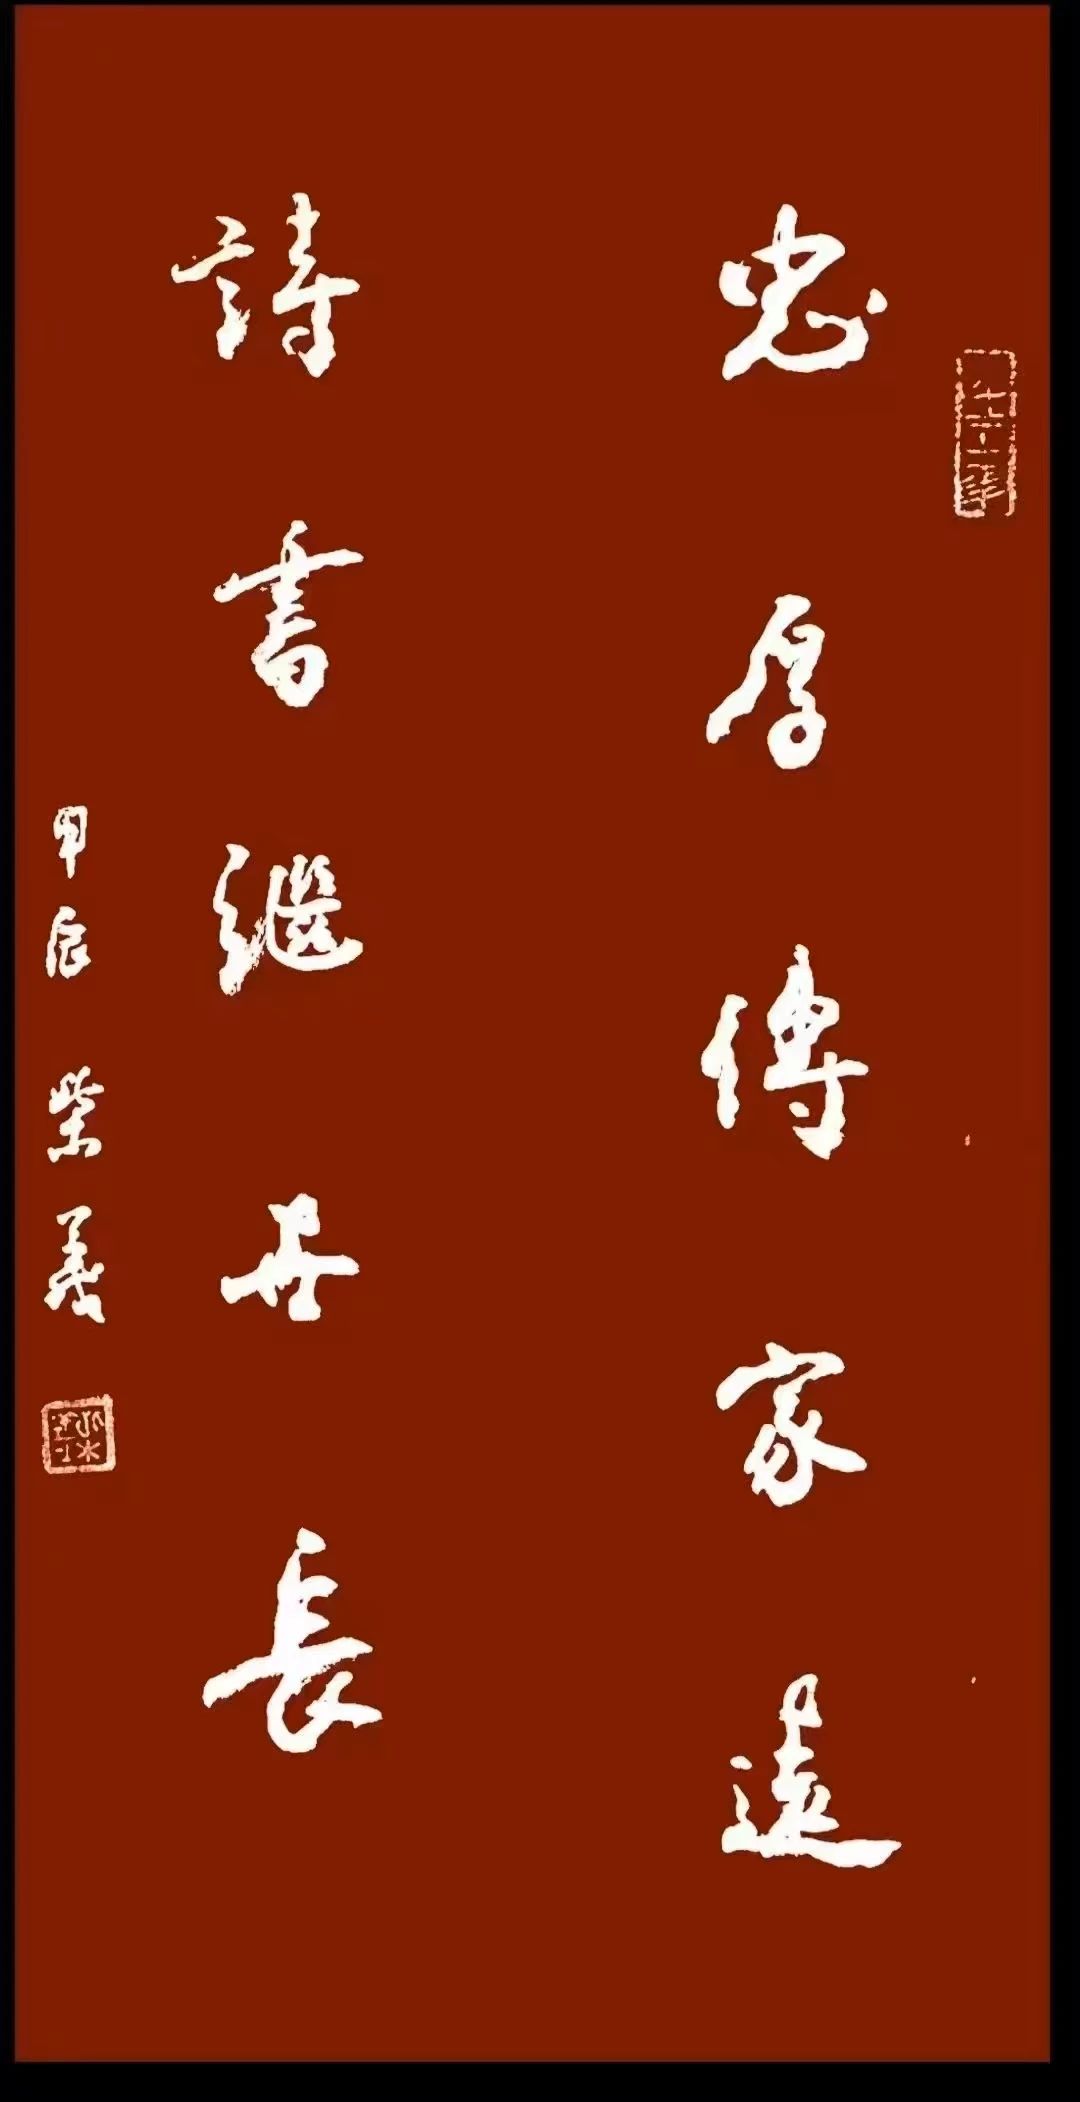 忠厚傳家遠
詩書繼世長
甲辰 紫義